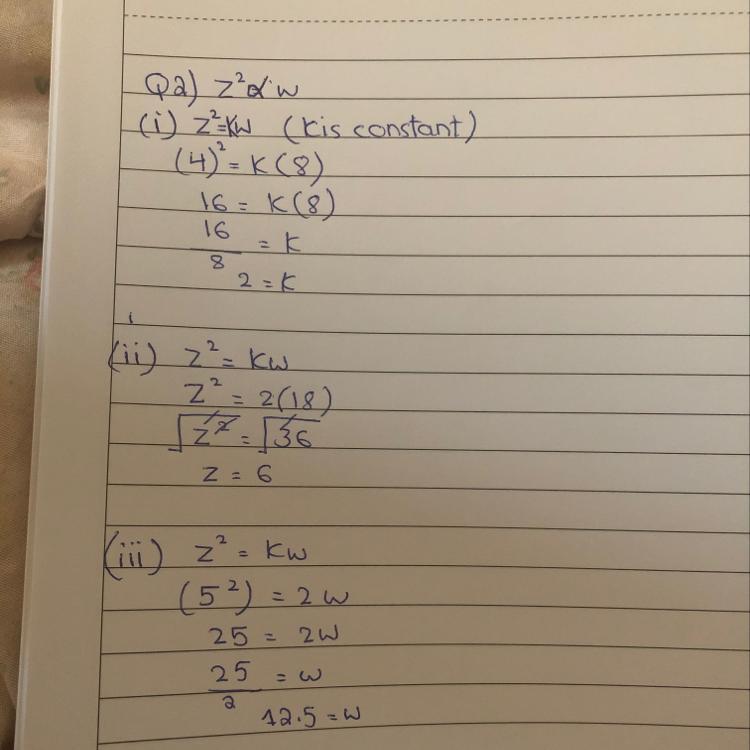 Q2) z²αw
(i) z²=Kw (K is constant)
(4)² = K(8)
16 = K(8)
16/8 = K
2 = K
(ii) z² = Kw
z² = 2(18)
√z² = √36
z = 6
(iii) z² = Kw
(5²) = 2w
25 = 2w
25/2 = w
12.5 = w